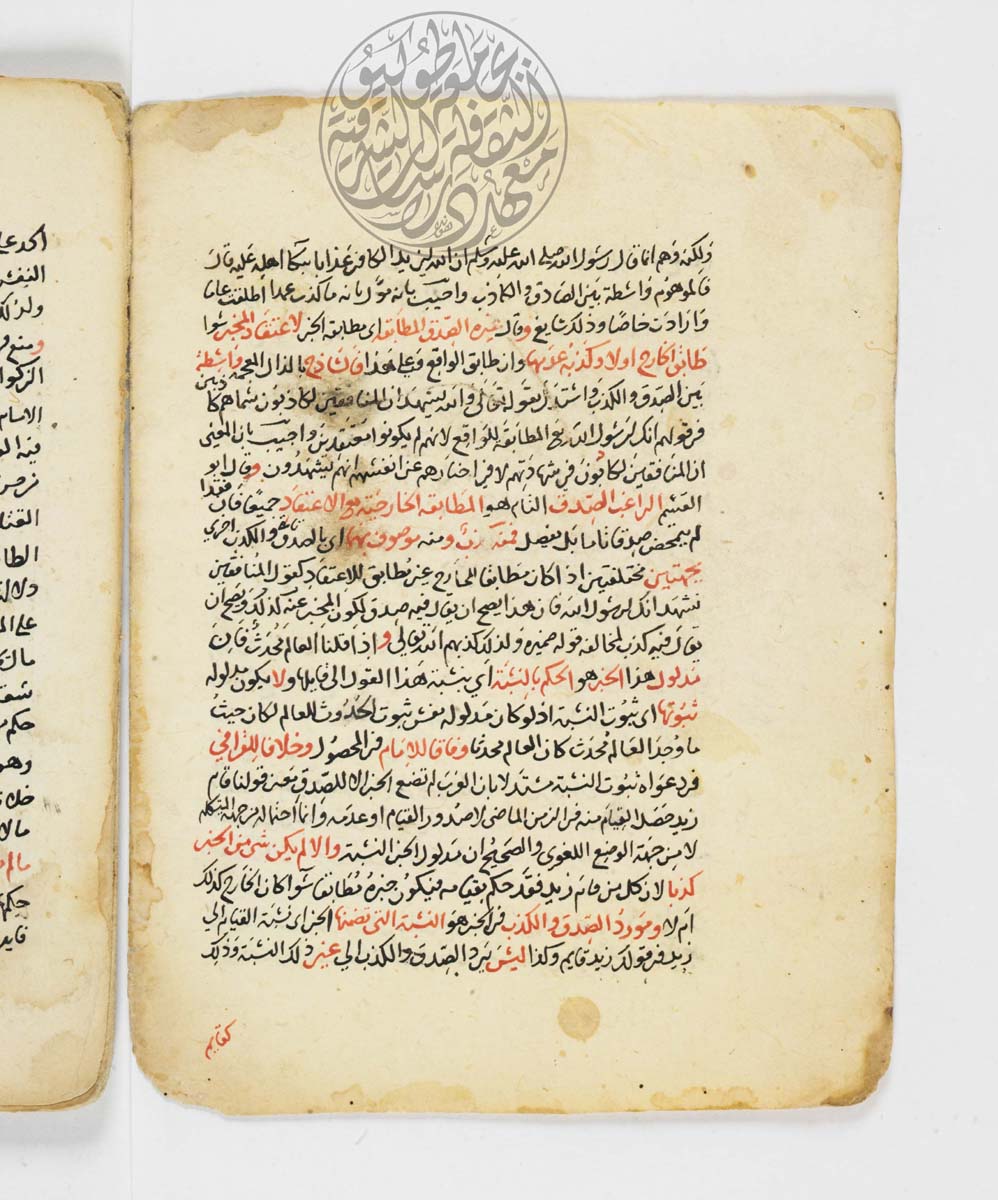 جامعة طوكيو
الثقافة الشرقية
معهد دراسات
ولكنه وهم انما قال رسول الله صلى الله عليه وسلم ان الله ليزيد الكافر عذابا ببكا اهله عليه قال
فالموهوم واسطة بين الصادق والكاذب واجيب بانه مؤل بانه ما كذب عمدا اطلقت عاما
وارادت خاصا وذلك شايع وقال غيره الصدق المطابقة اي مطابقة الخبر لاعتقاد المخبر سوا
طابق الخارج اولا وكذبه عدمها وان طابق الواقع وعلى هذا فالساذج بالذال المعجمة واسطة
بين الصدق والكذب واستدل بقوله تعالى والله يشهد ان المنافقين لكاذبون سماهم كاذبين
في قولهم انك لرسول الله مع المطابقة للواقع لانهم لم يكونوا معتقدين واجيب بان المعنى
ان المنافقين لكاذبون في شهادتهم لا في اخبارهم عن انفسهم انهم يشهدون وقال ابو
القسم الراغب الصدق التام هو المطابقة الخارجية مع الاعتقاد جميعا فان فقدا
لم يتمحض صدقا تاما بل بفصل فمنه كذب ومنه موصوف بهما اي بالصدق تارة والكذب اخرى
بجهتين مختلفتين اذا كان مطابقا للخارج غير مطابق للاعتقاد كقول المنافقين
نشهد انك لرسول الله فان هذا يصح ان يقال فيه صدق لكون المخبر عنه كذلك ويصح ان
يقال فيه كذب لمخالفة قوله ضميره ولذلك كذبهم الله تعالى واذا قلنا العالم محدث فان
مدلول هذا الخبر هو الحكم بالنسبة اي بنسبة هذا القول الى قايلها ولا يكون مدلوله
ثبوتها اي ثبوت النسبة اذ لو كان مدلوله نفس ثبوت الحدوث للعالم لكان حيث
ما وجد العالم محدث كان العالم محدثا وفاقا للامام في المحصول وخلافا للقرافي
في دعواه ثبوت النسبة مستدلا بان العرب لم تضع الخبر الا للصدق فمعنى قولنا قام
زيد حصل القيام منه في الزمن الماضي لا صدور القيام او عدمه وانما احتماله من جهة المتكلم
لا من جهة الوضع اللغوي والصحيح ان مدلول الخبر النسبة والا لم يكن شي من الخبر
كذبا لان كل من قام زيد فقد حكم بقيامه فيكون خبره مطابقا سوا كان الخارج كذلك
ام لا ومورد الصدق والكذب في الخبر هو النسبة التي تضمنها الخبر اي نسبة القيام الى
زيد في قولك زيد قايم وكذا ليس يرد الصدق والكذب الى غير ذلك النسبة وذلك
كقايم